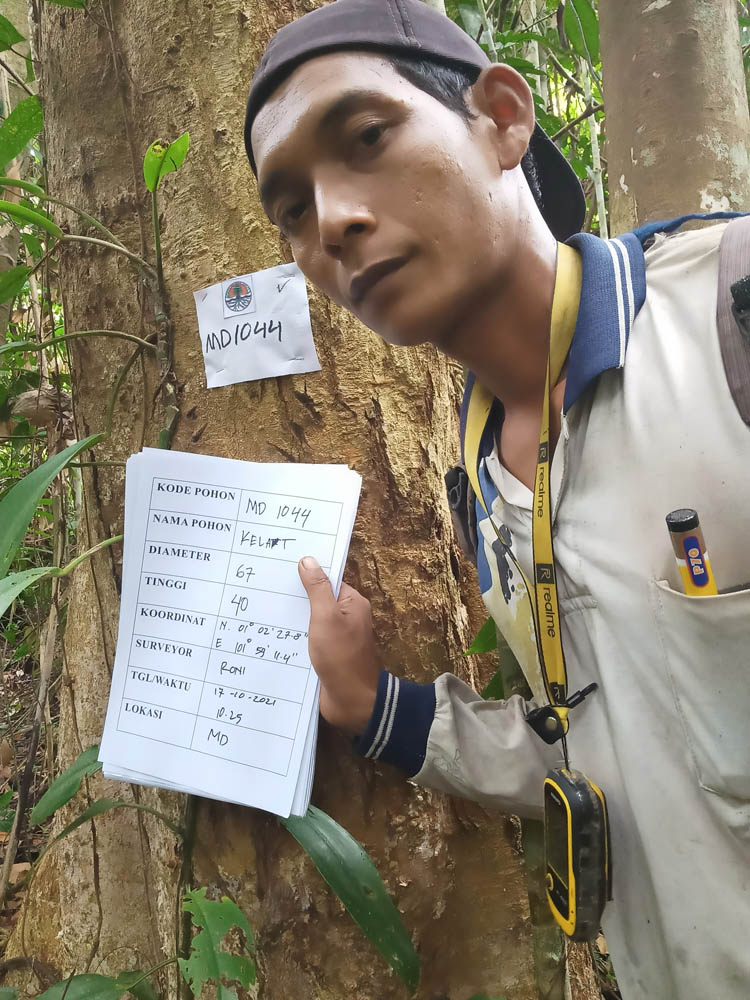 MD1044
KODE POHON MD 1044
NAMA POHON KELAT
DIAMETER 67
TINGGI 40
KOORDINAT N. 01° 02' 27.8"
E 101° 59' 11.4"
SURVEYOR RONI
TGL/WAKTU 17-10-2021
10.25
LOKASI MD
realme
R realme
P70